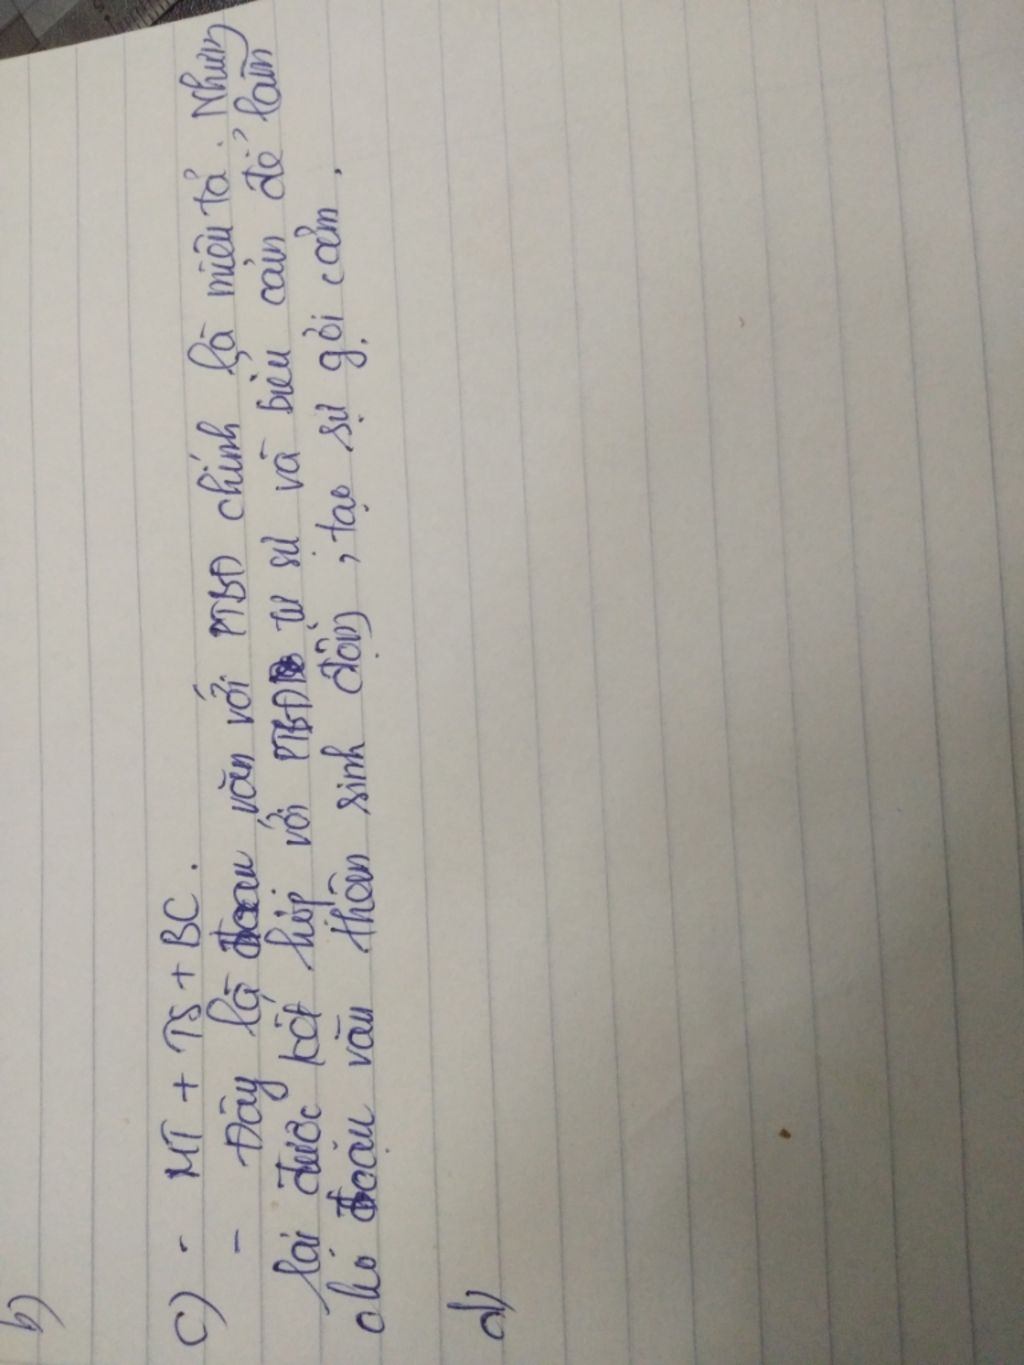 b)
c) - MT + TS + BC.
- Đây là đoạn văn với PTBĐ chính là miêu tả. Nhưng
lại được kết hợp với PTBĐ tự sự và biểu cảm để làm
cho đoạn văn thêm sinh động, tạo sự gợi cảm.
d)